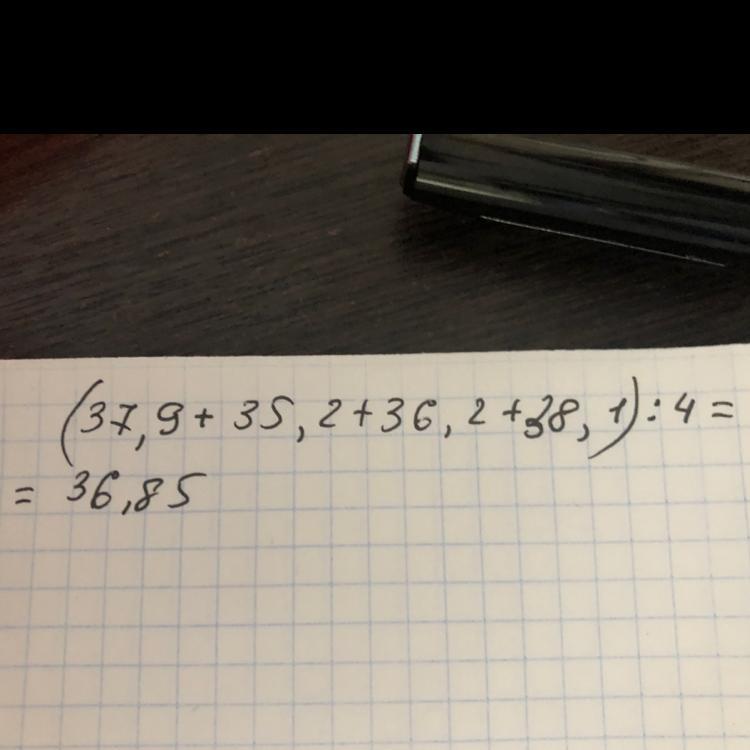 (37,9 + 35,2 + 36,2 + 38,1) : 4 =
= 36,85